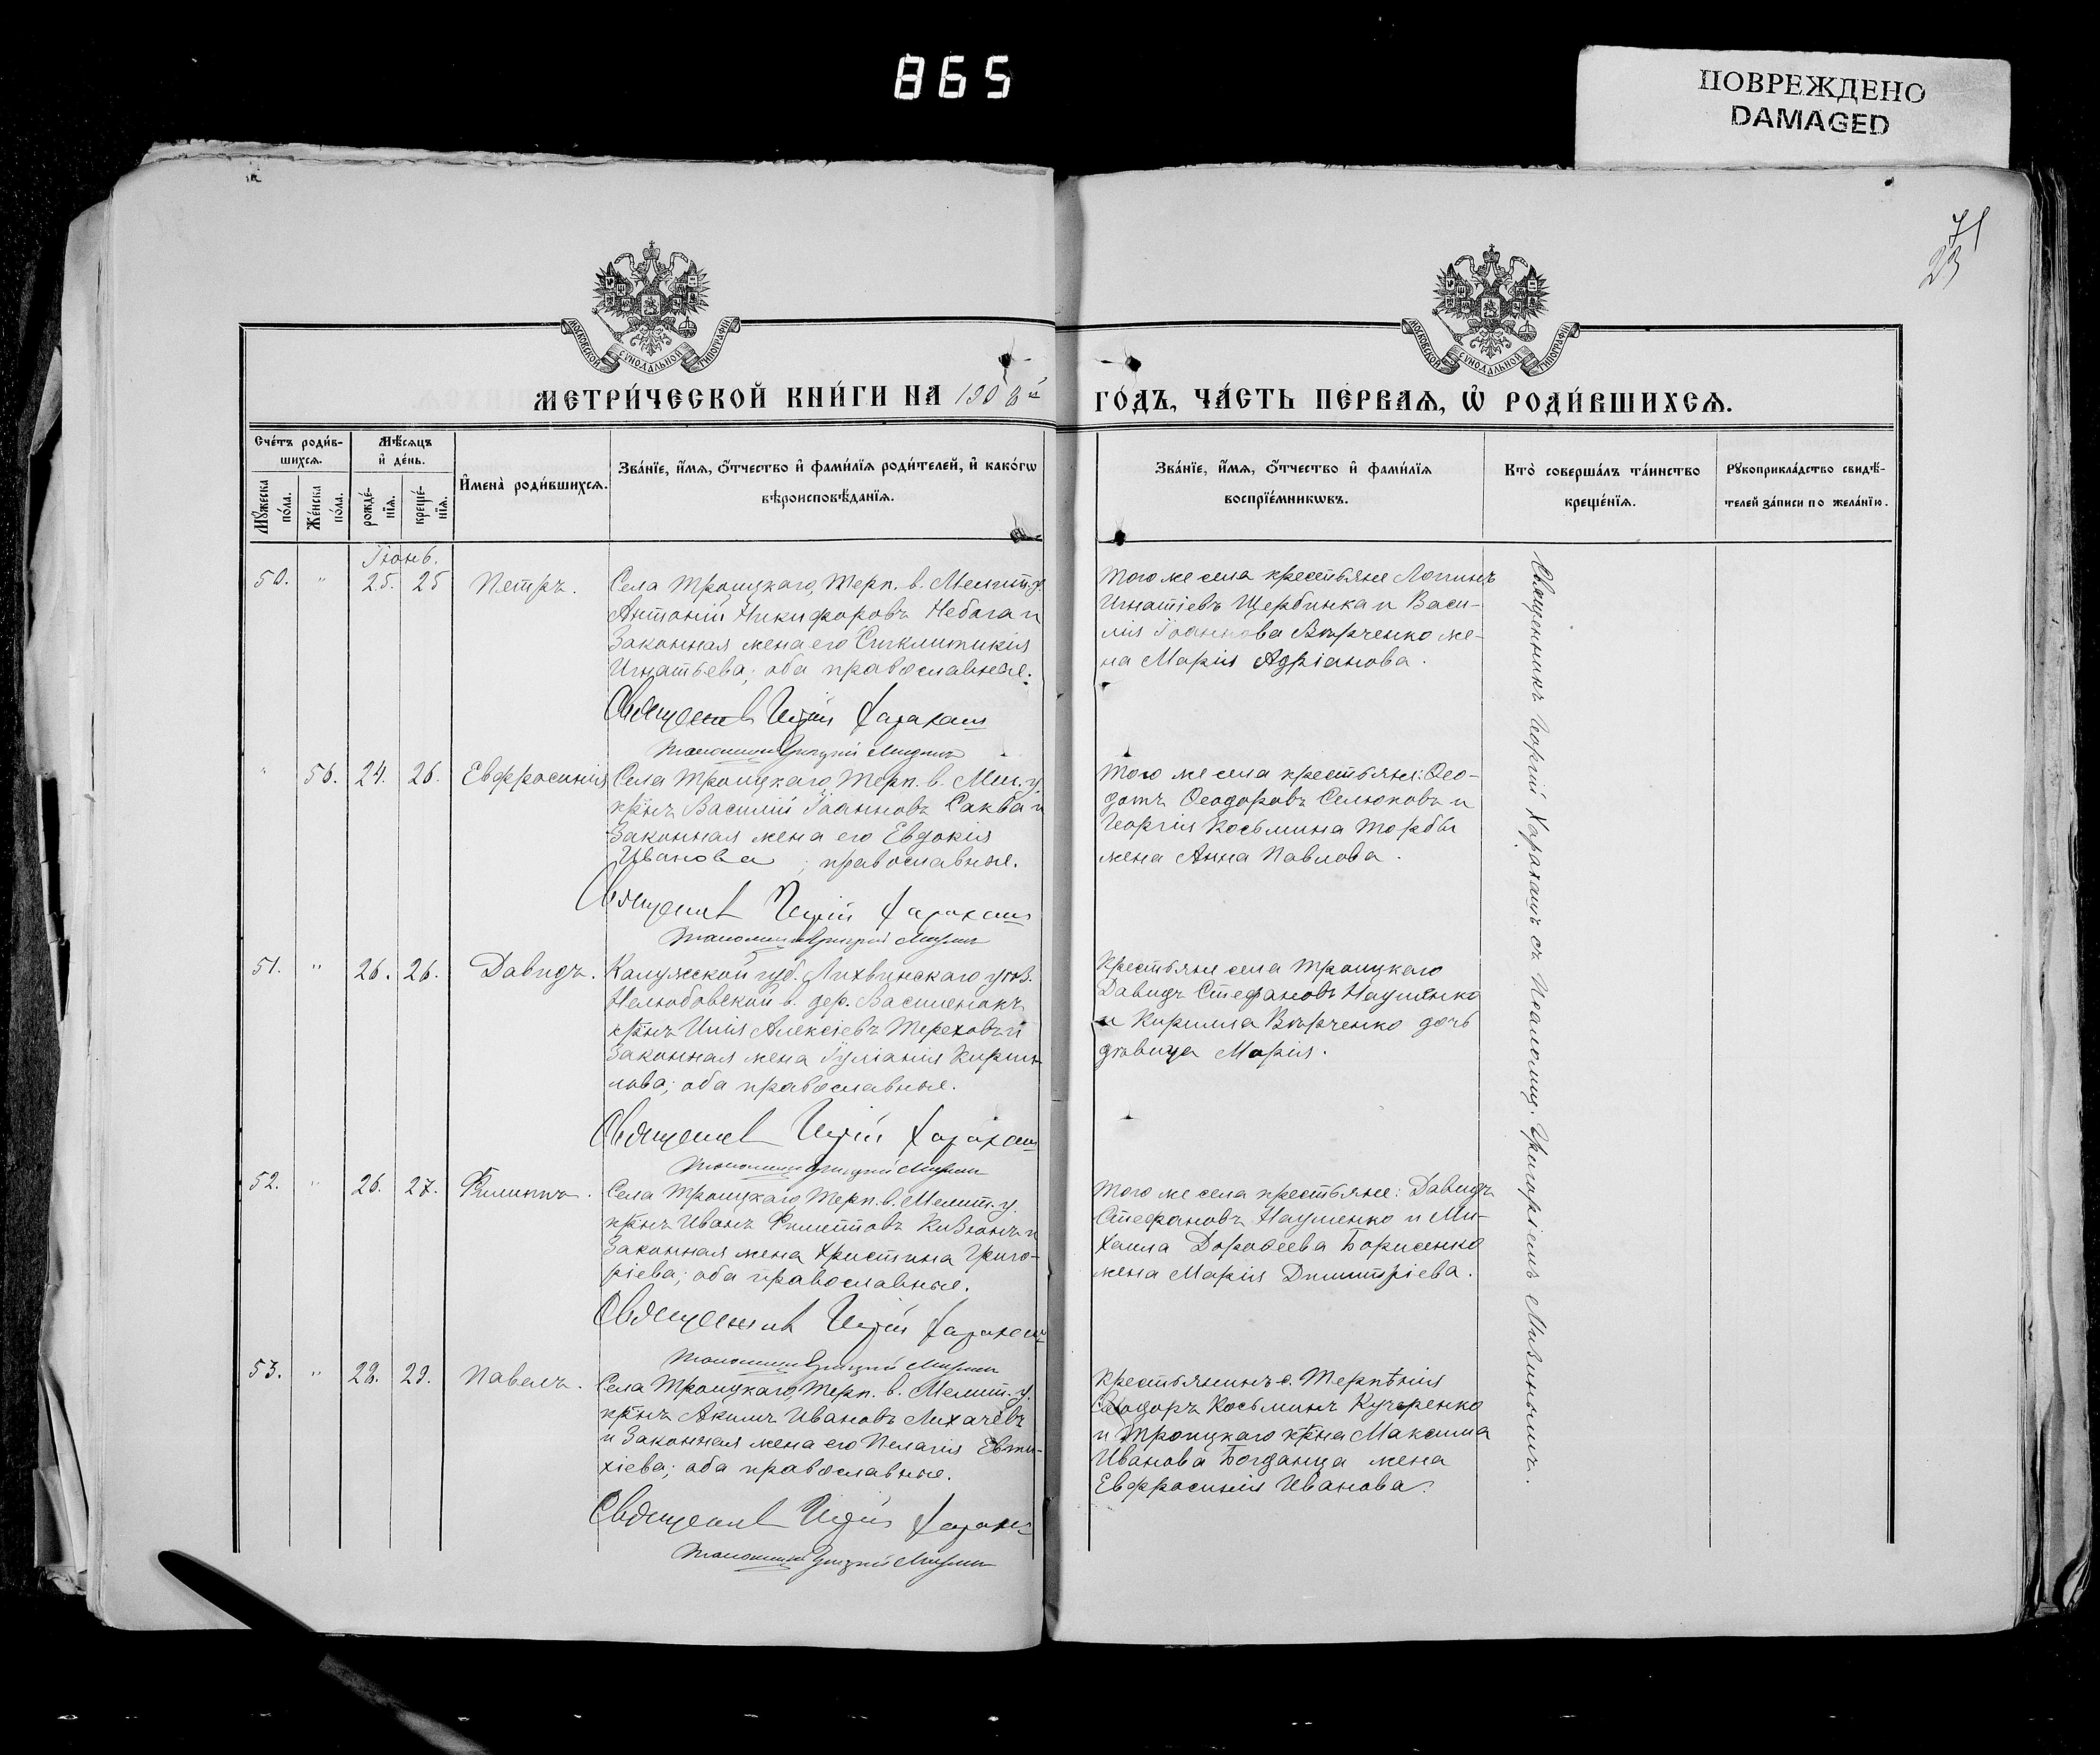 865
ПОВРЕЖДЕНО
DAMAGED
71
23
МОСКОВСКОЙ СѴНОДАЛЬНОЙ ТИПОГРАФІИ
МОСКОВСКОЙ СѴНОДАЛЬНОЙ ТИПОГРАФІИ
МЕТРИ́ЧЕСКОЙ КНИ́ГИ НА 1908й
ГО́ДЪ, ЧА́СТЬ ПЕ́РВАѦ, Ѡ҆ РОДИ́ВШИХСѦ.
Сче́тъ роди́в-
шихсѧ.
Мꙋ́жеска по́ла.
Же́нска по́ла.
Мѣ́сѧцъ
и҆ де́нь.
рожде́-
нїѧ.
креще́-
нїѧ.
И҆мена̀ роди́вшихсѧ.
Зва́нїе, и҆́мѧ, ѻ҆́тчество и҆ фами́лїѧ роди́телей, и҆ како́гѡ
вѣроисповѣ́данїѧ.
Зва́нїе, и҆́мѧ, ѻ҆́тчество и҆ фами́лїѧ
воспрїе́мникѡвъ.
Кто̀ соверша́лъ та́инство
креще́нїѧ.
Рꙋкоприкла́дство свидѣ́-
телей за́писи по жела́нїю.
Іюнь.
50. " 25. 25 Петръ.
Села Троицкаго, Терп. в. Мелит. у.
Антоній Никифоровъ Небога и
законная жена его Синклитикія
Игнатьева; оба православные.
Священникъ Георгій Харахашъ
Псаломщикъ Григорій Мизинъ
Того же села крестьяне Логинъ
Игнатіевъ Щербинка и Васи-
лія Іоаннова Вѣрченко же-
на Марія Адріанова.
" 56. 24. 26. Евфросинія
Села Троицкаго, Терп. в. Мел. у.
кр̃нъ Василій Іоанновъ Сакба и
законная жена его Евдокія
Иванова; православные.
Священникъ Георгій Харахашъ
Псаломщикъ Григорій Мизинъ
Того же села крестьяне: Ѳео-
дотъ Ѳеодоровъ Селюковъ и
Георгія Косьмина Торбы
жена Анна Павлова.
51. " 26. 26. Давидъ.
Калужской губ. Лихвинскаго уѣз.
Нелюбовской в. дер. Василенокъ
кр̃нъ Илія Алексіевъ Тереховъ и
законная жена Іуліанія Кирил-
лова; оба православные.
Священникъ Георгій Харахашъ
Псаломщикъ Григорій Мизинъ
Крестьяне села Троицкаго
Давидъ Стефановъ Науменко
и Кирилла Вѣрченко дочь
дѣвица Марія.
52. " 26. 27. Филиппъ.
Села Троицкаго, Терп. в. Мелит. у.
кр̃нъ Иванъ Филипповъ Кизюнъ и
законная жена Христина Григо-
ріева; оба православные.
Священникъ Георгій Харахашъ
Псаломщикъ Григорій Мизинъ
Того же села крестьяне: Давидъ
Стефановъ Науменко и Ми-
хаила Дороѳеева Борисенко
жена Марія Димитріева.
53. " 28. 29. Павелъ.
Села Троицкаго, Терп. в. Мелит. у.
кр̃нъ Акимъ Ивановъ Лихачевъ
и законная жена его Пелагія Евти-
хіева; оба православные.
Священникъ Георгій Харахашъ
Псаломщикъ Григорій Мизинъ
Крестьянинъ с. Терпѣнія
Ѳеодоръ Косьминъ Кучеренко
и Троицкаго кр̃на Максима
Иванова Богданца жена
Евфросинія Иванова.
Священникъ Георгій Харахашъ съ Псаломщ. Григоріемъ Мизинымъ.